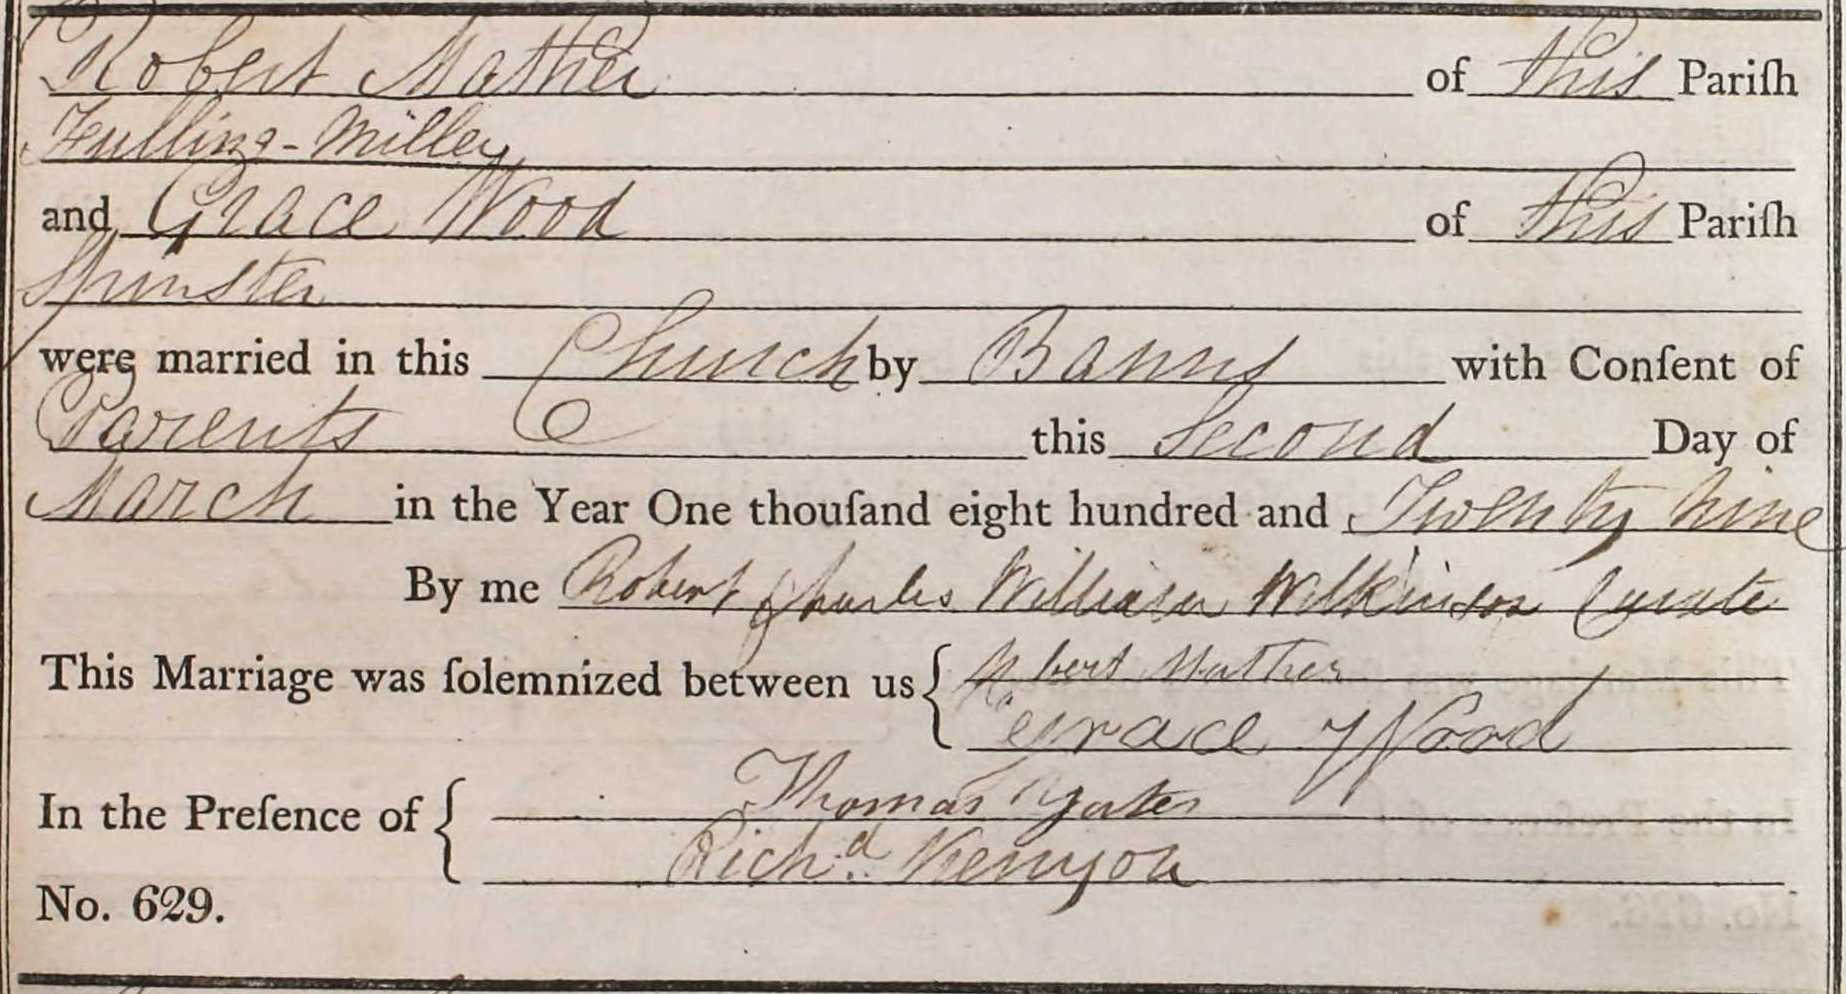 Robert Mather of this Pariſh
Fulling-Miller
and Grace Wood of this Pariſh
Spinster
were married in this Church by Banns with Conſent of
Parents this Second Day of
March in the Year One thouſand eight hundred and Twenty nine
By me Robert Charles William Wilkinson Curate
This Marriage was ſolemnized between us { Robert Mather
Grace Wood
In the Preſence of { Thomas Yates
Richd. Kenyon
No. 629.